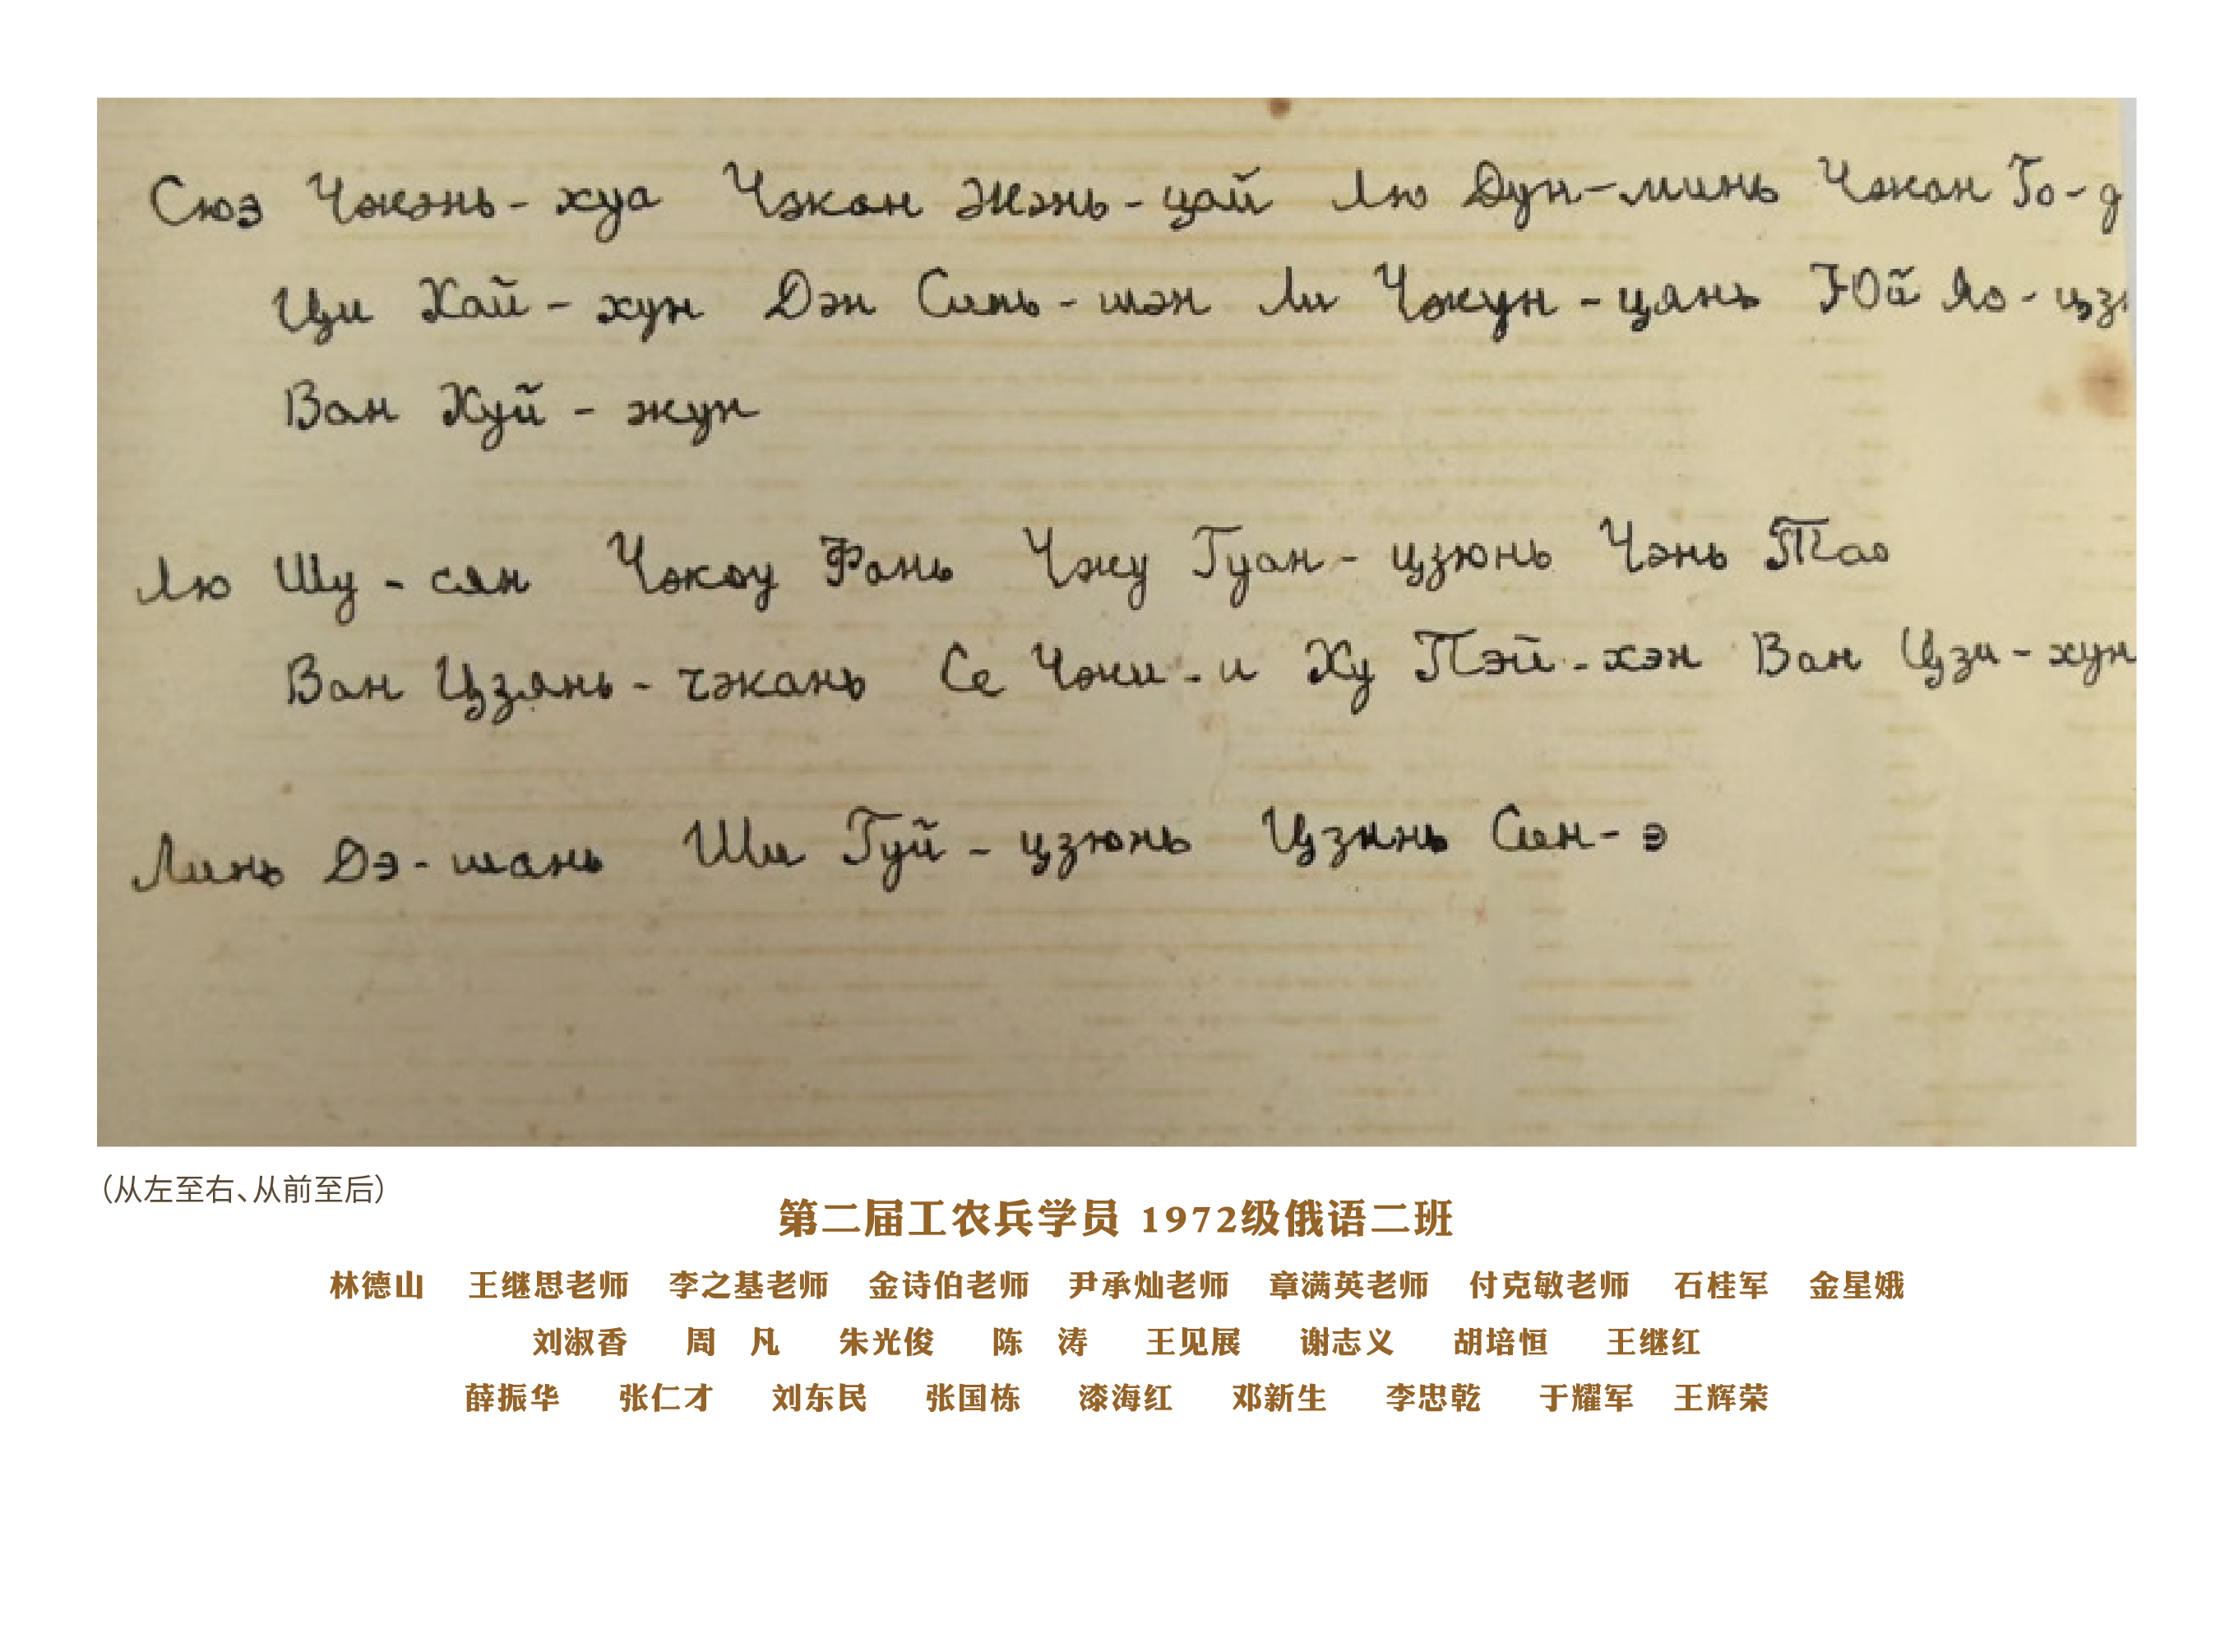 Сюэ Чжэнь-хуа Чжан Жэнь-цай Лю Дун-минь Чжан Го-д
Ци Хай-хун Дэн Синь-шэн Ли Чжун-цянь Юй Яо-цз
Ван Хуй-жун
Лю Шу-сян Чжоу Фань Чжу Гуан-цзюнь Чэнь Тао
Ван Цзянь-чжань Се Чжи-и Ху Пэй-хэн Ван Цзи-хун
Линь Дэ-шань Ши Гуй-цзюнь Цзинь Син-э
（从左至右、从前至后）
第二届工农兵学员 1972级俄语二班
林德山 王继思老师 李之基老师 金诗伯老师 尹承灿老师 章满英老师 付克敏老师 石桂军 金星娥
刘淑香 周 凡 朱光俊 陈 涛 王见展 谢志义 胡培恒 王继红
薛振华 张仁才 刘东民 张国栋 漆海红 邓新生 李忠乾 于耀军 王辉荣